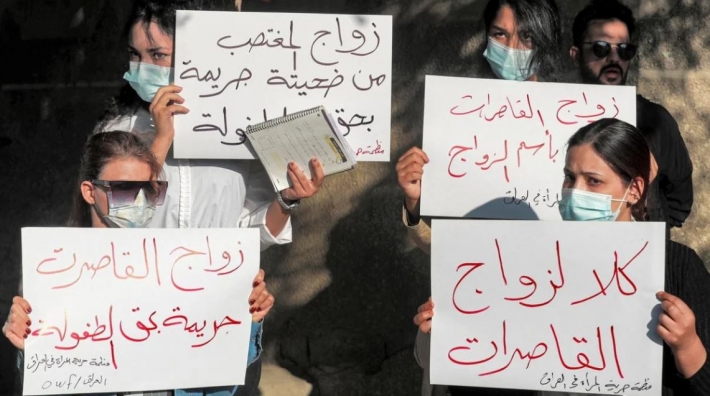 زواج المغتصب
من ضحيتة جريمة
بحق الطفولة
زواج القاصرات
بأسم الزواج
المرأة في العراق
زواج القاصرت
جريمة بحق الطفولة
منظمة حرية المرأة في العراق
العراق / owf
كلا لزواج
القاصرات
منظمة حرية المرأة في العراق